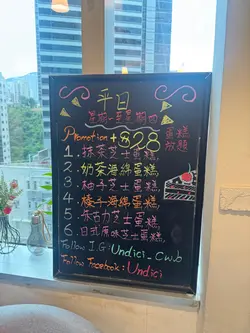 平日
星期一至星期四
Promotion + $28 蛋糕放題
1. 抹茶芝士蛋糕
2. 奶茶海綿蛋糕
3. 柚子芝士蛋糕
4. 橙汁海綿蛋糕
5. 朱古力芝士蛋糕
6. 日式原味芝士蛋糕
Follow I.G: Undici_cwb
Follow Facebook: Undici